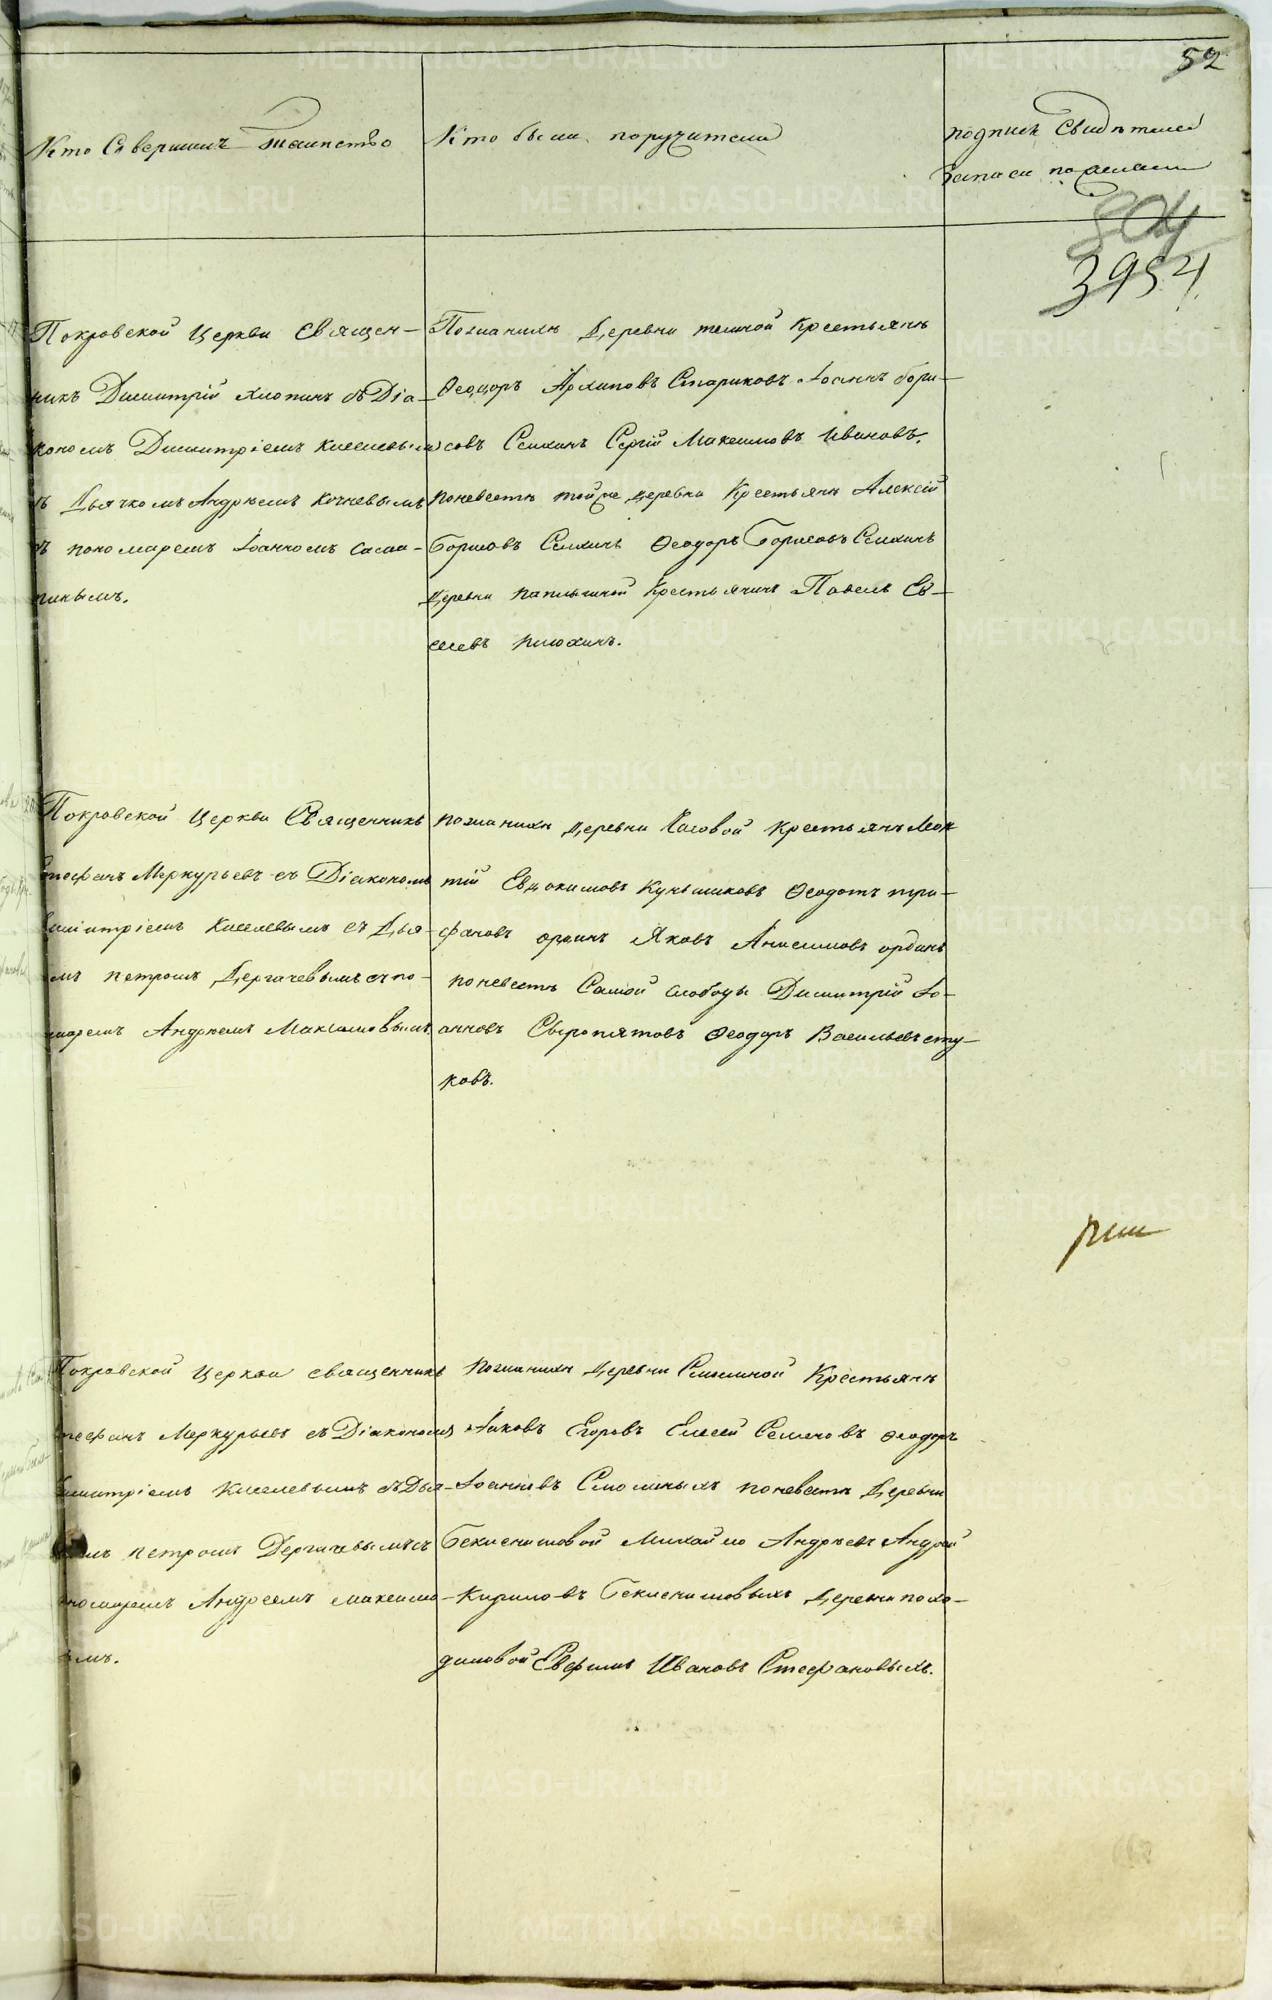 52
Кто Совершилъ Таинство
Кто были поручители
подпись Свидѣтелей
записи по желанию
804
3954
Покровской Церкви Священ-
никъ Димитрій Хлопинъ съ Діа-
кономъ Димитріемъ Киселевымъ
съ Дьячкомъ Андреемъ Кочневымъ
съ пономаремъ Іоанномъ
Пожанихѣ Деревни Крестьянѣ
Ѳеодоръ Архиповъ Стариковъ Іоаннъ бори-
совъ Селинъ Сергій Максимовъ Ивановъ.
поневестѣ той же деревни Крестьянѣ Алексій
Борисовъ Ѳеодоръ Борисовъ
Деревни Крестьянинъ Павелъ Ев-
сеевъ плюхинъ.
Покровской Церкви Священникъ
Стефанъ Меркурьевъ съ Діакономъ
Димитріемъ Киселевымъ съ Дья-
омъ петромъ Дергачевымъ съ по-
номаремъ Андреемъ Максимовымъ
пожанихѣ деревни Часовой Крестьянъ Леон
тій Евдокимовъ Ѳеодотъ три-
фановъ Яковъ Анисимовъ
поневестѣ Самой слободы Димитрій Іо-
анновъ Сыропятовъ Ѳеодоръ Васильевъ сту-
ковъ.
Покровской Церкви священникъ
Стефанъ Меркурьевъ съ Діакономъ
Димитріемъ Киселевымъ съ Дья-
омъ петромъ Дергачевымъ съ
пономаремъ Андреемъ максимо-
вымъ.
пожанихѣ деревни Смолиной Крестьянѣ
Іаковъ Егоровъ Елисей Семеновъ Ѳеодоръ
Іоанновъ Смолиныхъ поневестѣ Деревни
Бекленишовой Михайло Андреевъ Андрей
Кириловъ Бекленишовыхъ деревни похо-
диловой Евфимъ Ивановъ Стефановыхъ.